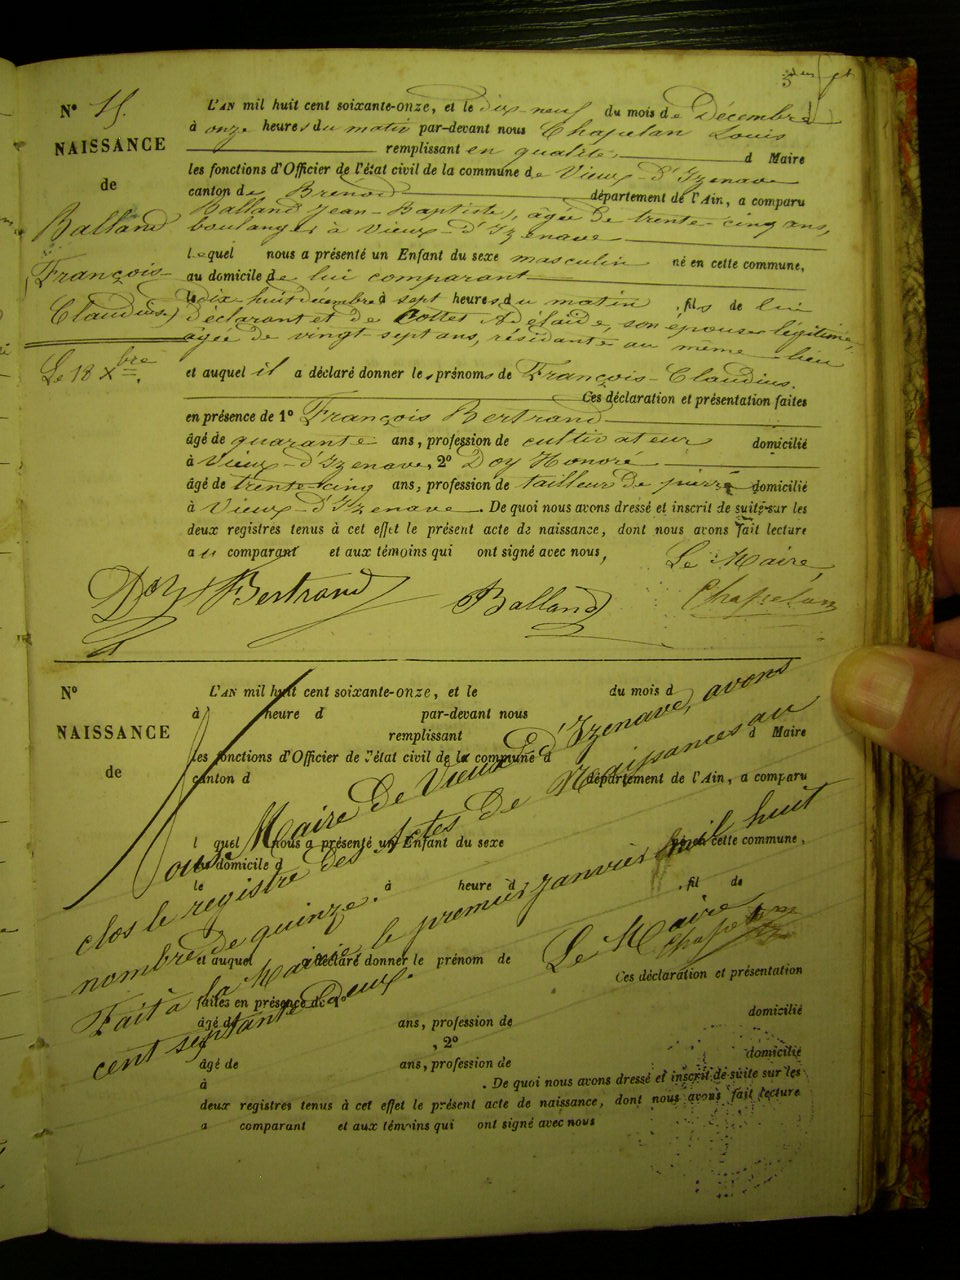 N° 15.
NAISSANCE
de
Balland
François-
Claudius
Le 18 Xbre
L'AN mil huit cent soixante-onze, et le dix-neuf du mois de Décembre
à onze heures du matin par-devant nous Chapelan Louis
remplissant en qualité d Maire
les fonctions d'Officier de l'état civil de la commune de Vieux-d'Izenave
canton de Brénod département de l'Ain, a comparu
Balland Jean-Baptiste, âgé de trente-cinq ans,
boulanger à Vieux-d'Izenave
lequel nous a présenté un Enfant du sexe masculin né en cette commune,
au domicile de lui comparant
le dix huit décembre à sept heures du matin, fils de lui
déclarant et de Cottet Adélaïde, son épouse légitime,
âgée de vingt sept ans, résidante au même lieu
et auquel il a déclaré donner les prénoms de François-Claudius.
Ces déclaration et présentation faites
en présence de 1° François Bertrand
âgé de quarante ans, profession de cultivateur domicilié
à Vieux-d'Izenave, 2° Doy Honoré
âgé de trente-cinq ans, profession de tailleur de pierre domicilié
à Vieux-d'Izenave. De quoi nous avons dressé et inscrit de suite sur les
deux registres tenus à cet effet le présent acte de naissance, dont nous avons fait lecture
au comparant et aux témoins qui ont signé avec nous,
Le Maire,
Doy Bertrand Balland Chapelan
N°
NAISSANCE
de
L'AN mil huit cent soixante-onze, et le du mois d
à heure d par-devant nous
remplissant d Maire
les fonctions d'Officier de l'état civil de la commune d
canton d département de l'Ain, a comparu
l quel nous a présenté un Enfant du sexe né en cette commune,
au domicile d
le à heure d , fil de
et auquel a déclaré donner le prénom de
Ces déclaration et présentation
faites en présence de 1°
âgé de ans, profession de domicilié
à , 2°
âgé de ans, profession de domicilié
à . De quoi nous avons dressé et inscrit de suite sur les
deux registres tenus à cet effet le présent acte de naissance, dont nous avons fait lecture
a comparant et aux témoins qui ont signé avec nous
Nous Maire de Vieux d'Izenave, avons
clos le registre des Actes de Naissances au
nombre de quinze.
Fait à la Mairie, le premier janvier mil huit
cent septante deux.
Le Maire
Chapelan